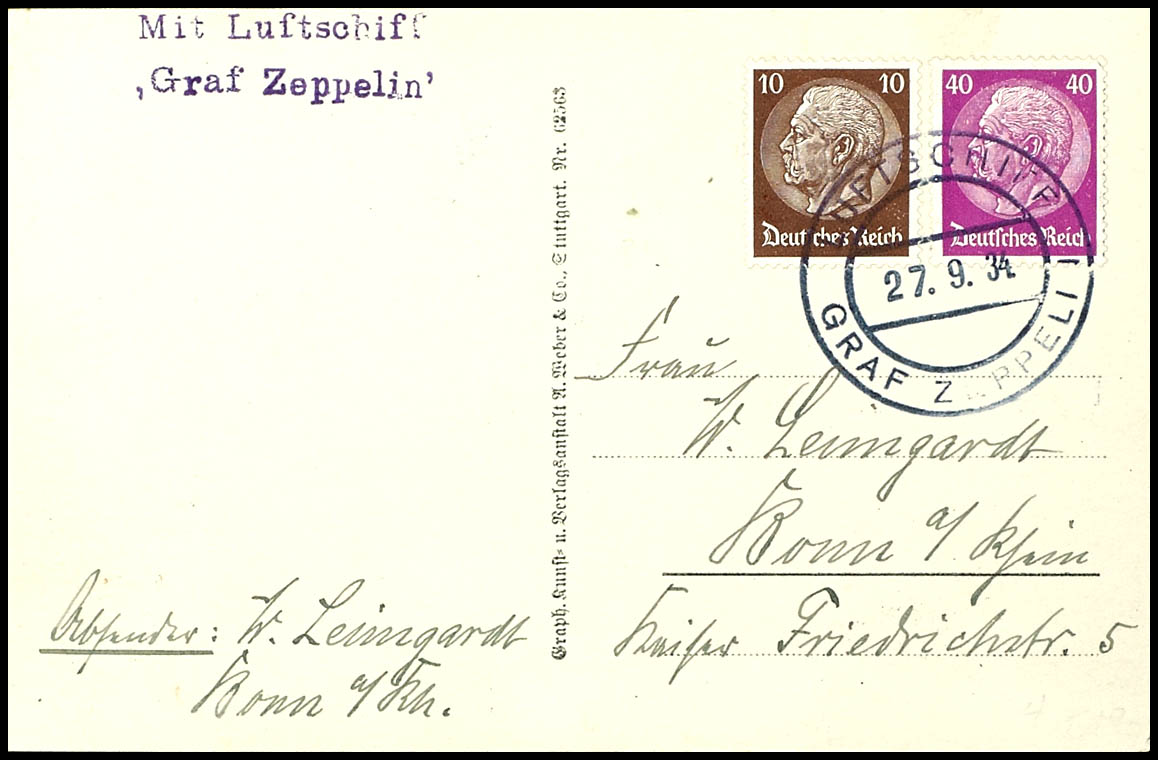 Mit Luftschiff
‚Graf Zeppelin’
10 10
Deutsches Reich
40 40
Deutsches Reich
LUFTSCHIFF
27. 9. 34
GRAF ZEPPELIN
Graph. Kunst= u. Verlagsanstalt A. Weber & Co., Stuttgart. Nr. 62563
Frau
W. Leimgardt
Bonn a/ Rhein
Kaiser Friedrichstr. 5
Absender: W. Leimgardt
Bonn a/ Rh.